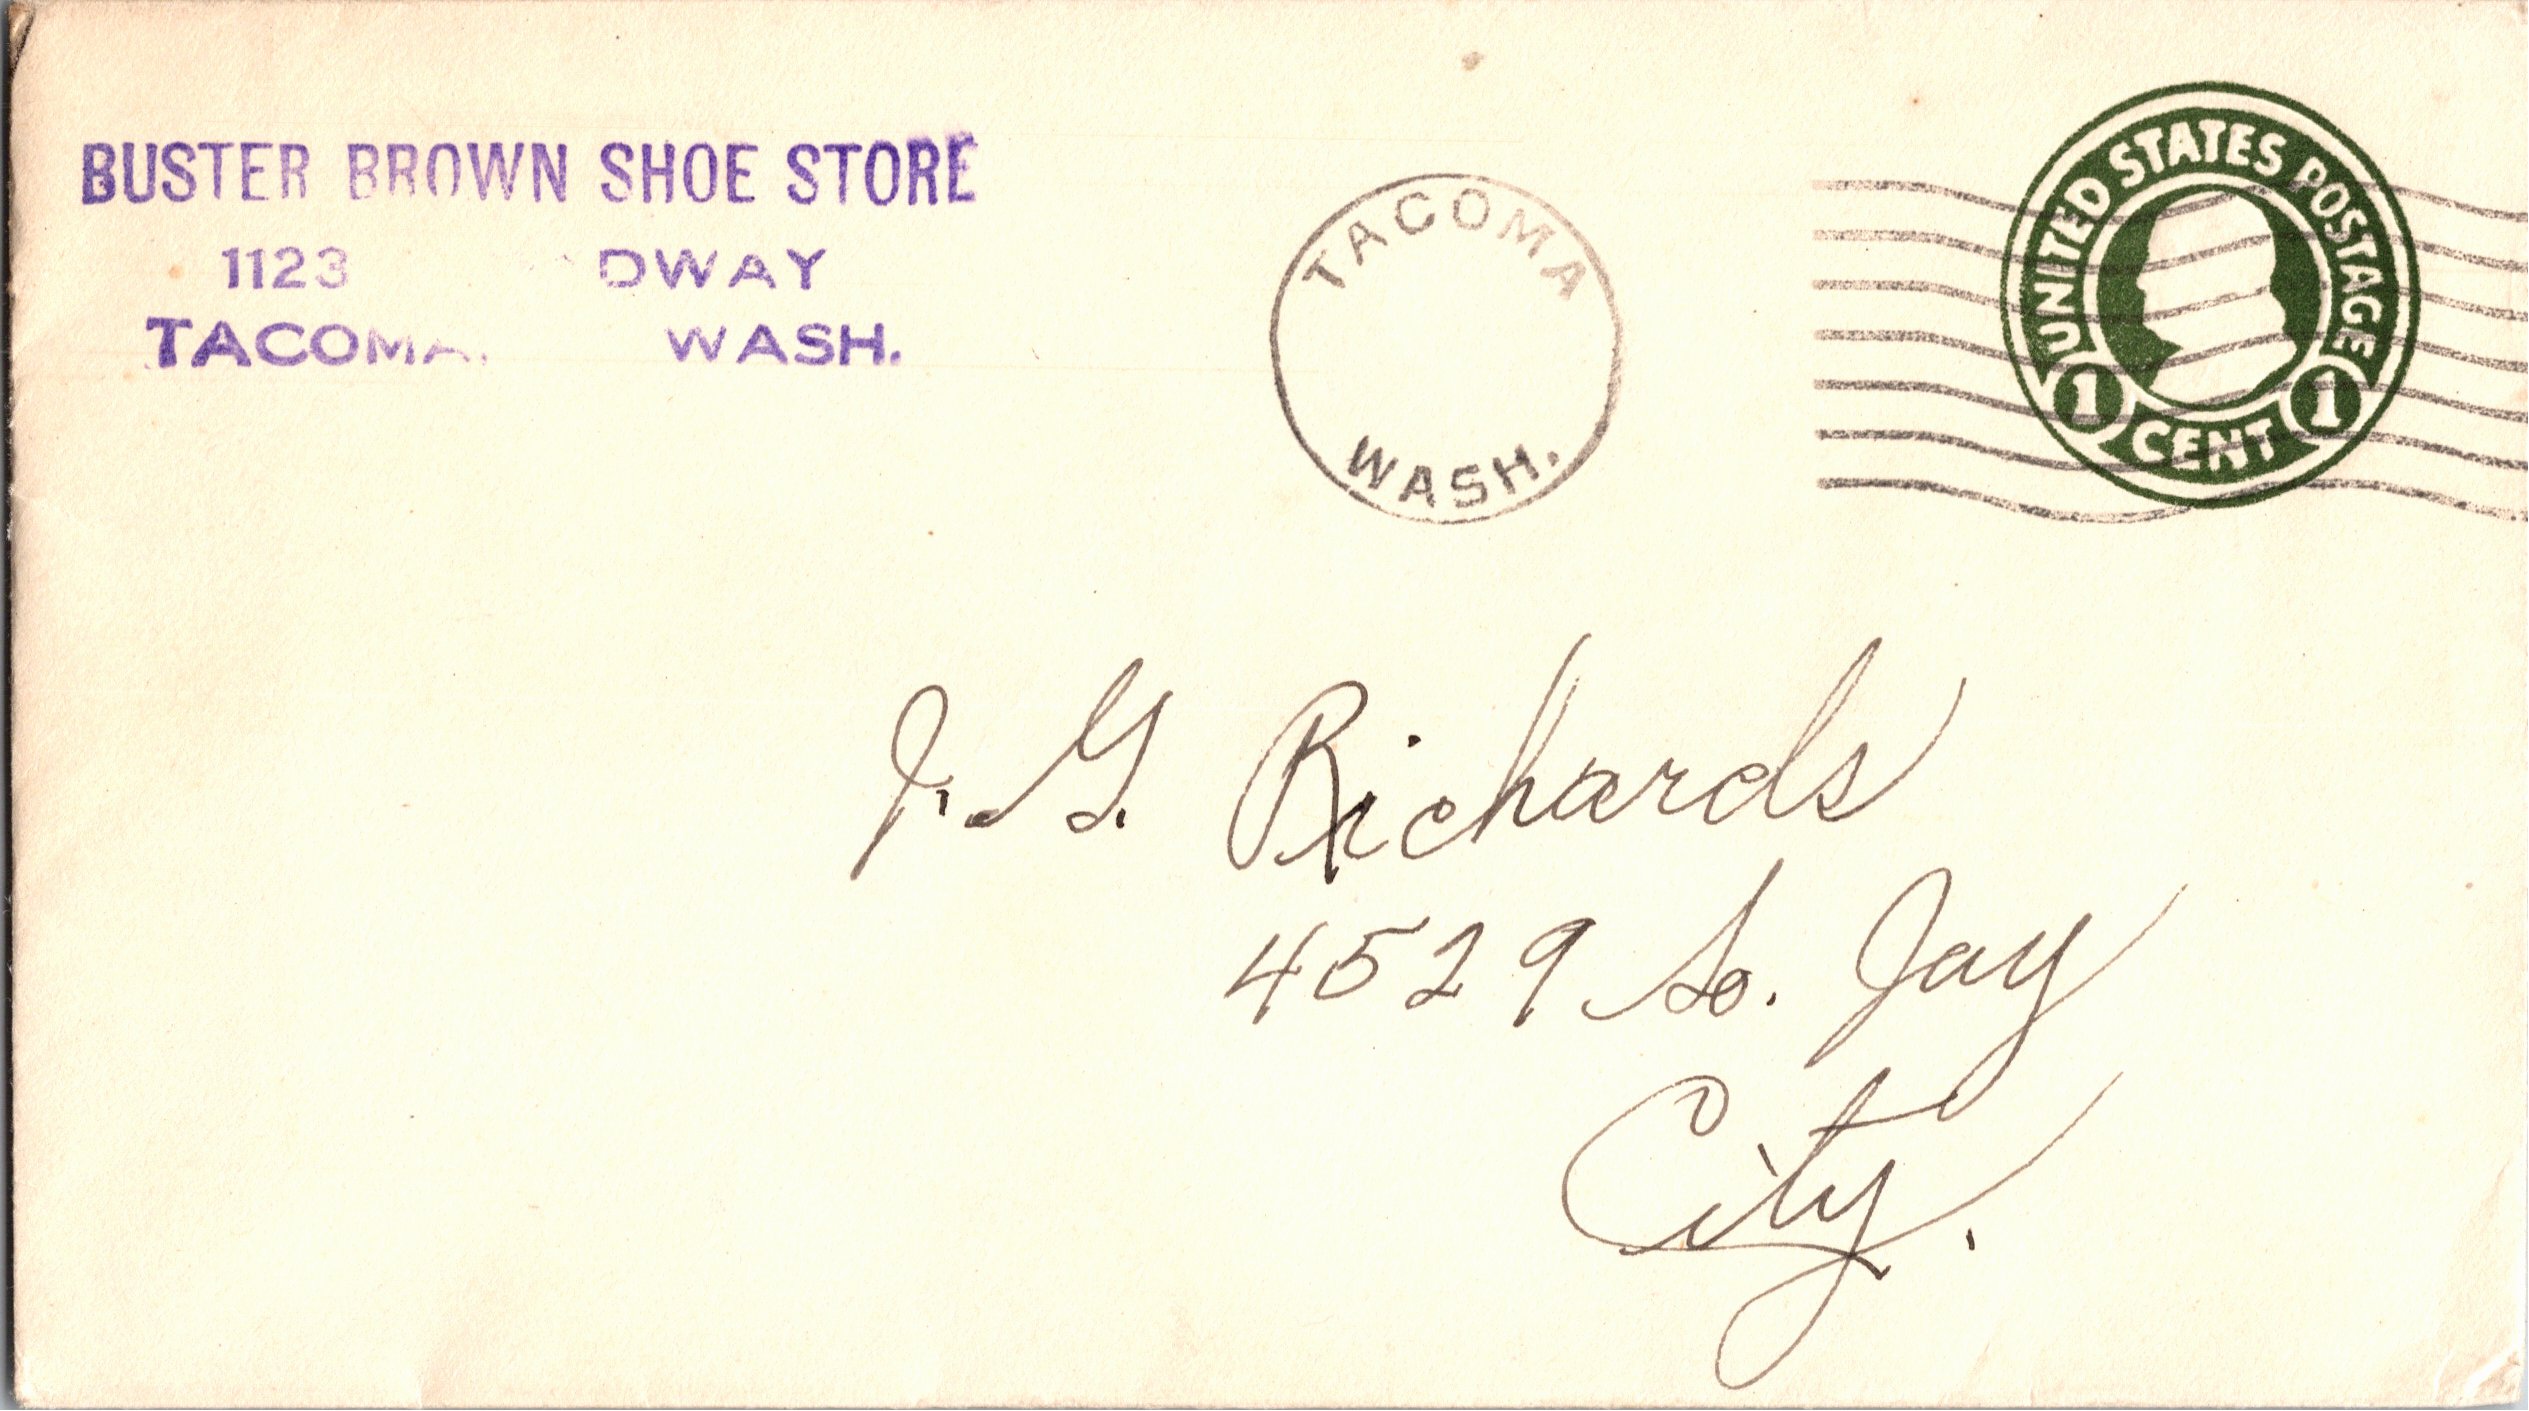 BUSTER BROWN SHOE STORE
1123 DWAY
TACOMA. WASH.
TACOMA
WASH.
UNITED STATES POSTAGE
1 CENT 1
J. G. Richards
4529 So. Jay
City.